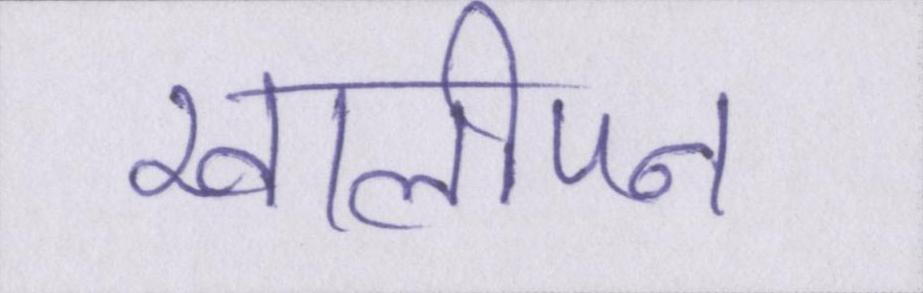 खालीपन